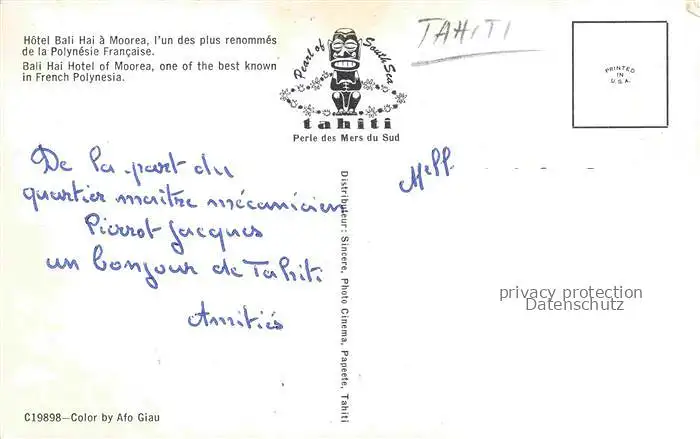 Hôtel Bali Hai à Moorea, l'un des plus renommés
de la Polynésie Française.
Bali Hai Hotel of Moorea, one of the best known
in French Polynesia.
Pearl of South Sea
tahiti
Perle des Mers du Sud
TAHITI
PRINTED
IN
U.S.A.
De la part du
quartier maître mécanicien
Pierrot Jacques
un bonjour de Tahiti
Amitiés
Distributeur: Sincere, Photo Cinema, Papeete, Tahiti
Mell
privacy protection
Datenschutz
C19898—Color by Afo Giau